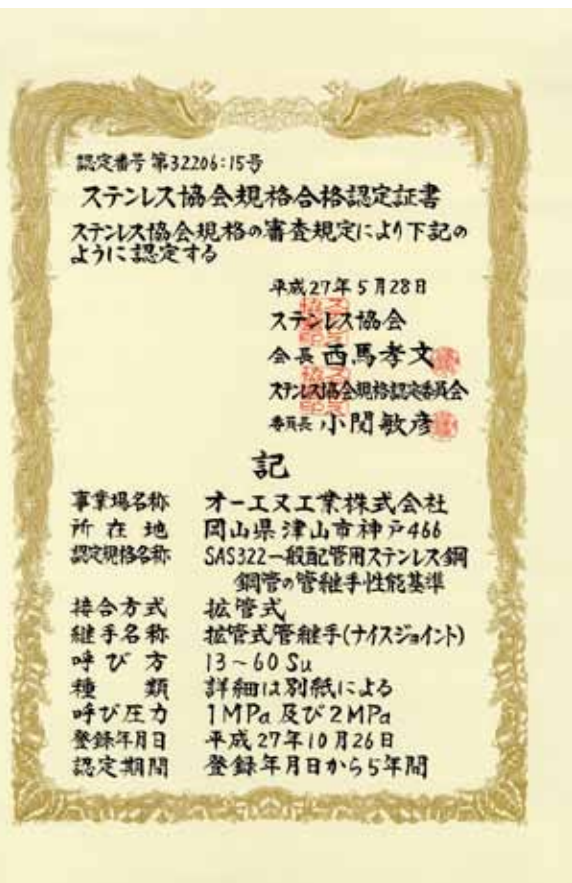 認定番号 第32206:15号
ステンレス協会規格合格認定証書
ステンレス協会規格の審査規定により下記の
ように認定する
平成27年5月28日
ステンレス協会
会長 西馬孝文
ステンレス協会規格認定委員会
委員長 小関敏彦
記
事業場名称 オーエヌ工業株式会社
所在地 岡山県津山市神戸466
認定規格名称 SAS322一般配管用ステンレス鋼
鋼管の管継手性能基準
接合方式 拡管式
継手名称 拡管式管継手(ナイスジョイント)
呼び方 13~60Su
種類 詳細は別紙による
呼び圧力 1MPa及び2MPa
登録年月日 平成27年10月26日
認定期間 登録年月日から5年間